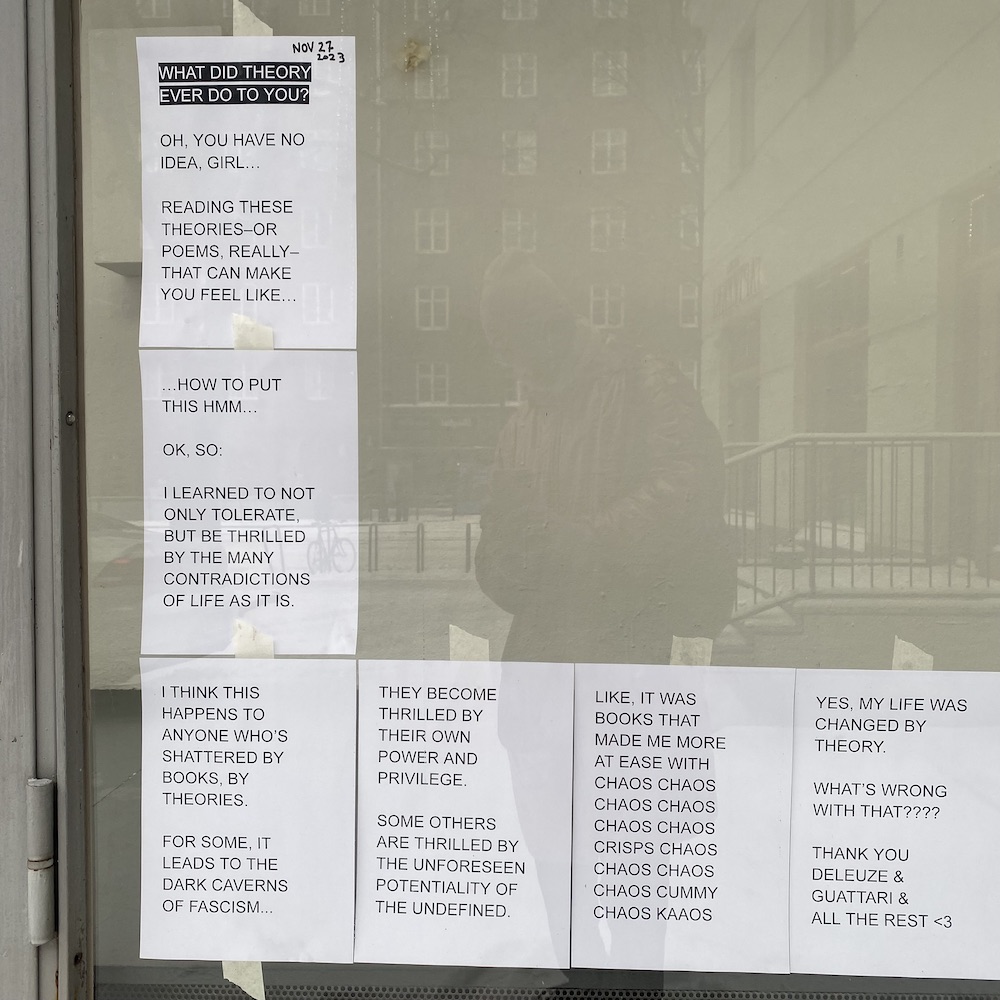 NOV 27
2023
WHAT DID THEORY
EVER DO TO YOU?
OH, YOU HAVE NO
IDEA, GIRL...
READING THESE
THEORIES–OR
POEMS, REALLY–
THAT CAN MAKE
YOU FEEL LIKE...
...HOW TO PUT
THIS HMM...
OK, SO:
I LEARNED TO NOT
ONLY TOLERATE,
BUT BE THRILLED
BY THE MANY
CONTRADICTIONS
OF LIFE AS IT IS.
I THINK THIS
HAPPENS TO
ANYONE WHO'S
SHATTERED BY
BOOKS, BY
THEORIES.
FOR SOME, IT
LEADS TO THE
DARK CAVERNS
OF FASCISM...
THEY BECOME
THRILLED BY
THEIR OWN
POWER AND
PRIVILEGE.
SOME OTHERS
ARE THRILLED BY
THE UNFORESEEN
POTENTIALITY OF
THE UNDEFINED.
LIKE, IT WAS
BOOKS THAT
MADE ME MORE
AT EASE WITH
CHAOS CHAOS
CHAOS CHAOS
CHAOS CHAOS
CRISPS CHAOS
CHAOS CHAOS
CHAOS CUMMY
CHAOS KAAOS
YES, MY LIFE WAS
CHANGED BY
THEORY.
WHAT'S WRONG
WITH THAT????
THANK YOU
DELEUZE &
GUATTARI &
ALL THE REST <3